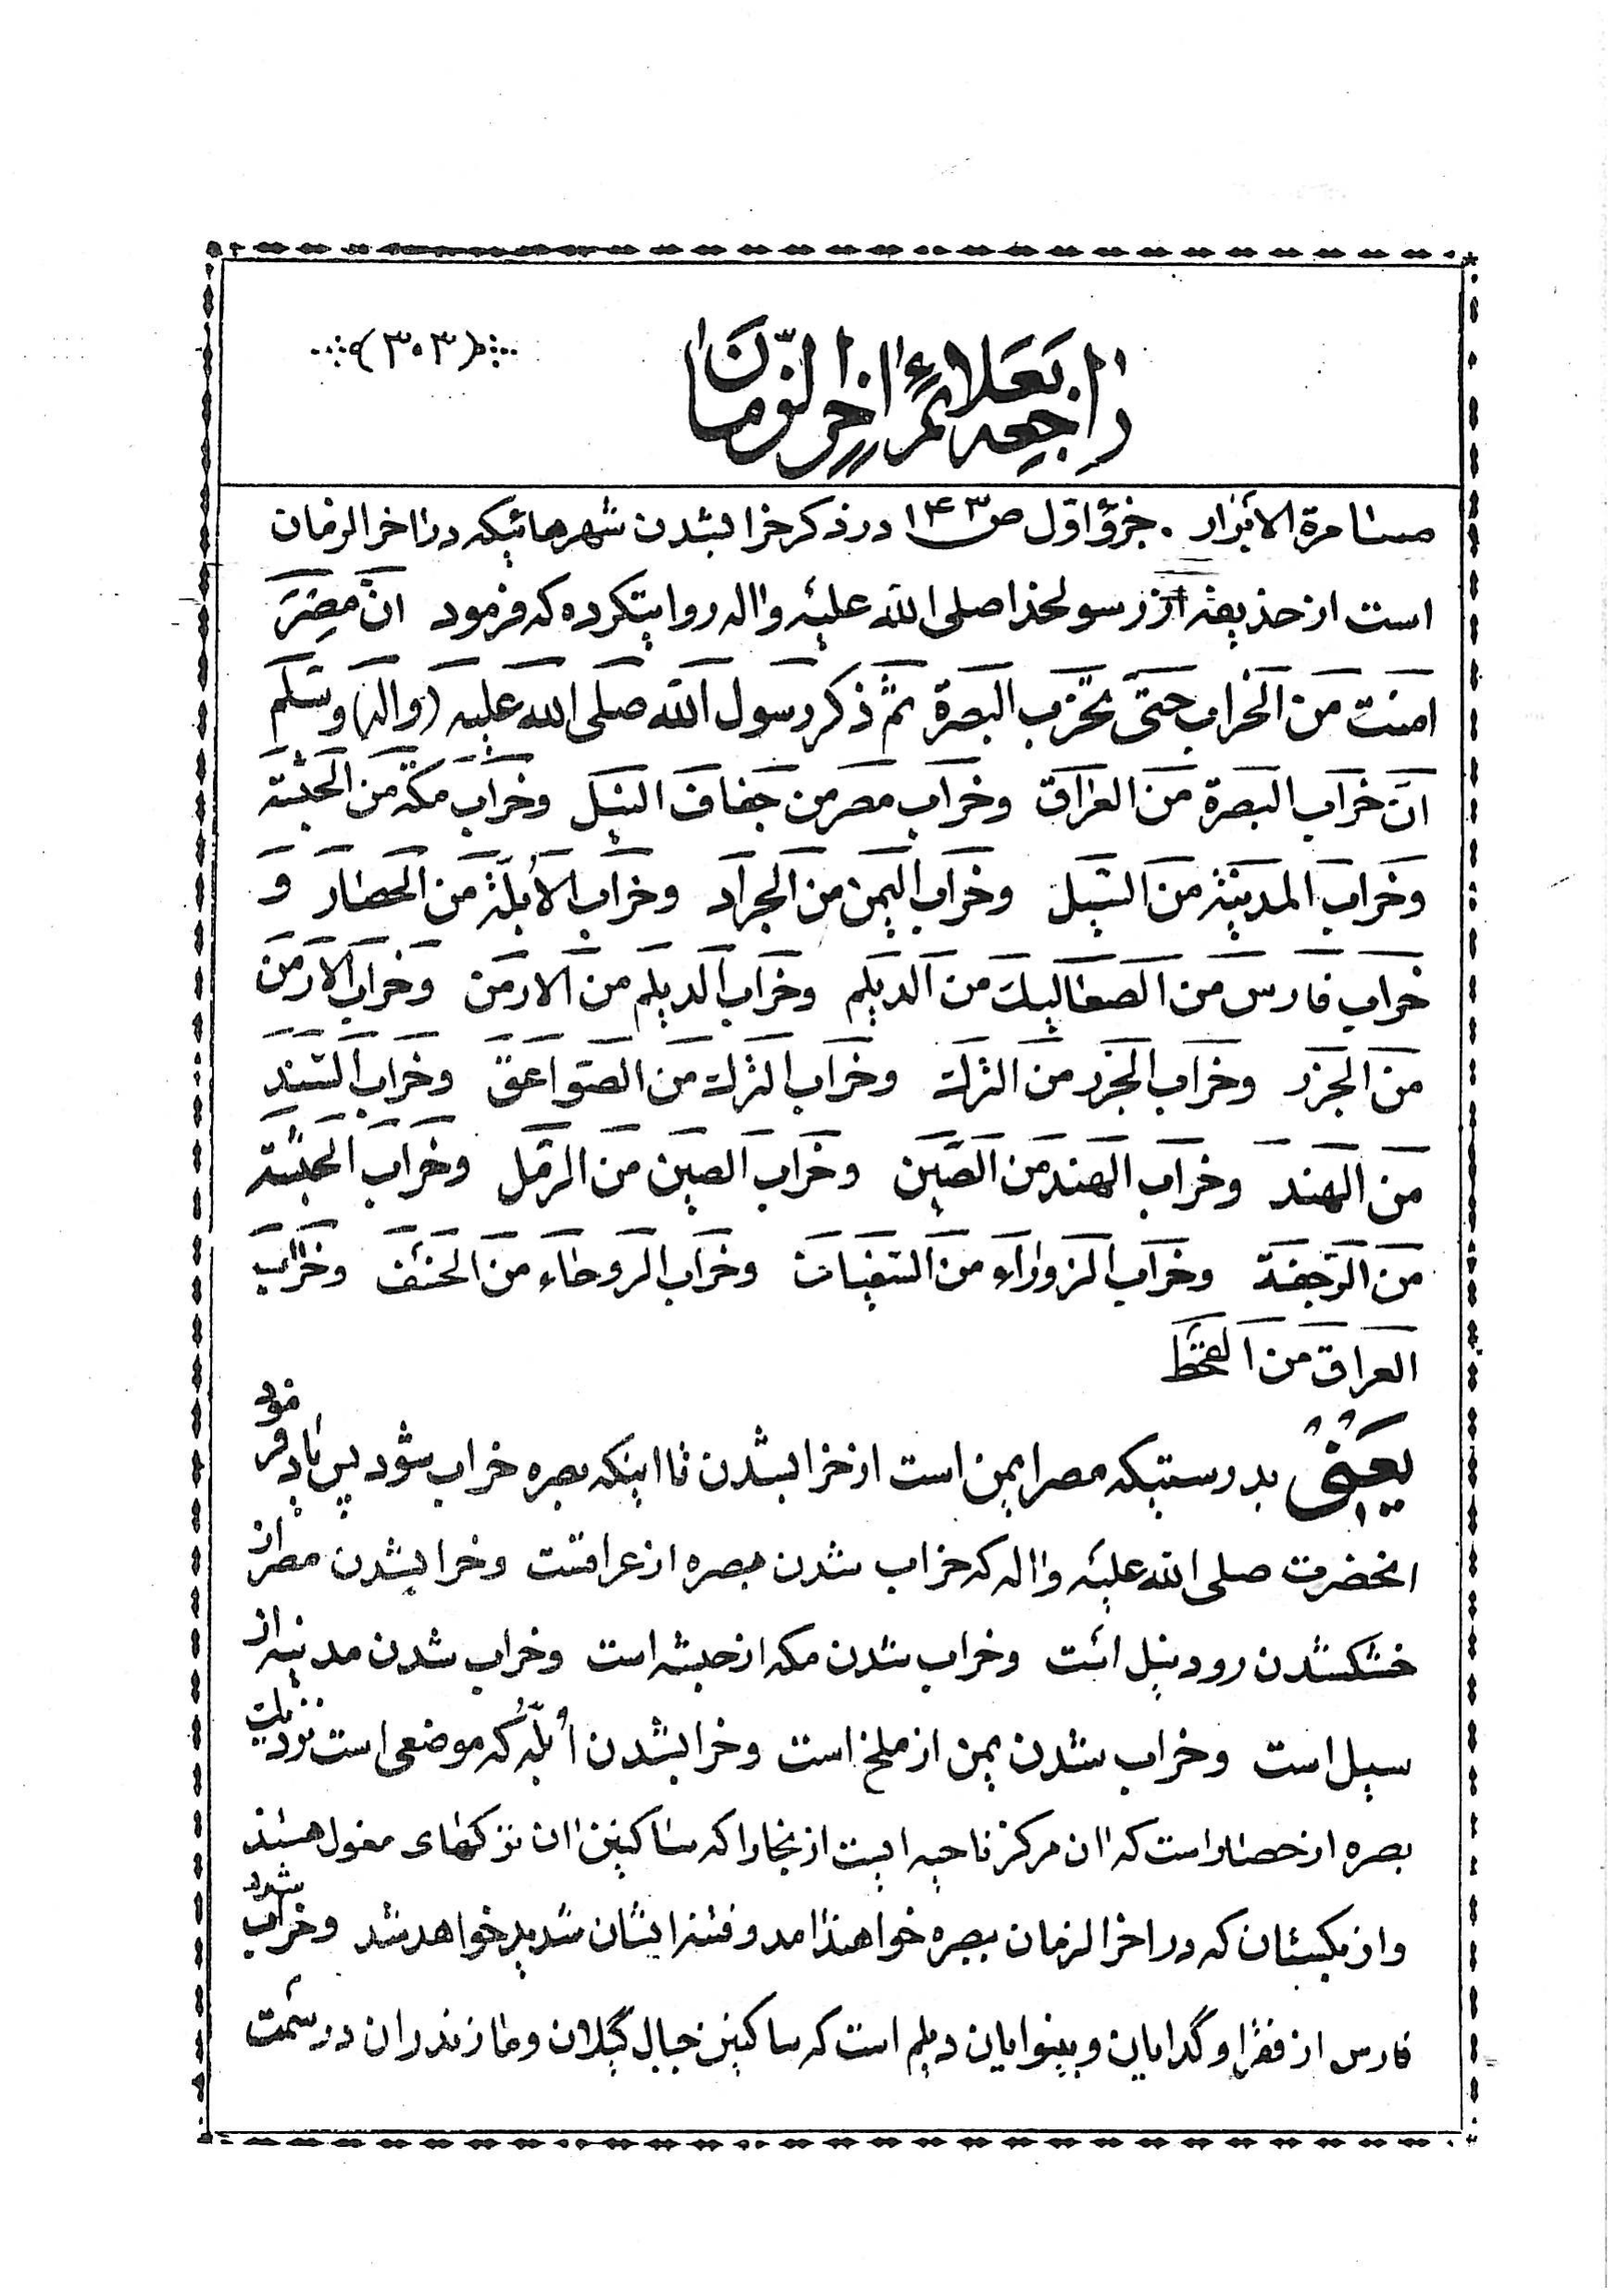 راجعه بعلائم اخر الزمان
(۳۰۳)
مسامرة الابرار . جزؤ اول ص ۱۴۳ در ذکر خرابشدن شهرهائیکه در اخر الزمان
است از حذیفه از رسولخدا صلی الله علیه واله روایتکرده که فرمود انّ مصر
امنت من الخراب حتی تخرب البصرة ثم ذکر رسول الله صلی الله علیه (واله) وسلم
انّ خراب البصرة من العراق وخراب مصر من جفاف النیل وخراب مکة من الحبشة
وخراب المدینة من السیل وخراب الیمن من الجراد وخراب الأبلة من الحصار و
خراب فارس من الصعالیك من الدیلم وخراب الدیلم من الارمن وخراب الارمن
من الجزر وخراب الجزر من الترك وخراب الترك من الصواعق وخراب السند
من الهند وخراب الهند من الصین وخراب الصین من الرمل وخراب الحبشة
من الرجفة وخراب الزوراء من السفیان وخراب الروحاء من الخسف وخراب
العراق من القحط
یعنی بدرستیکه مصر ایمن است از خرابشدن تا اینکه بصره خراب شود پس یاد فرمود
انحضرت صلی الله علیه واله که خراب شدن بصره از عراقست وخرابشدن مصر از
خشکشدن رود نیل است وخراب شدن مکه از حبشه است وخراب شدن مدینه از
سیل است وخراب شدن یمن از ملخ است وخرابشدن أبلّه که موضعی است نزدیك
بصره از حصار است که ان مرکز ناحیه ایست از بخارا که ساکنین ان ترکهای مغول هستند
واز یکیشان که در اخر الزمان ببصره خواهند امد وفتنه ایشان شدید خواهد شد وخراب شود
فارس از فقرا و گدایان و بینوایان دیلم است که ساکنین جبال گیلان ومازندران در سمت